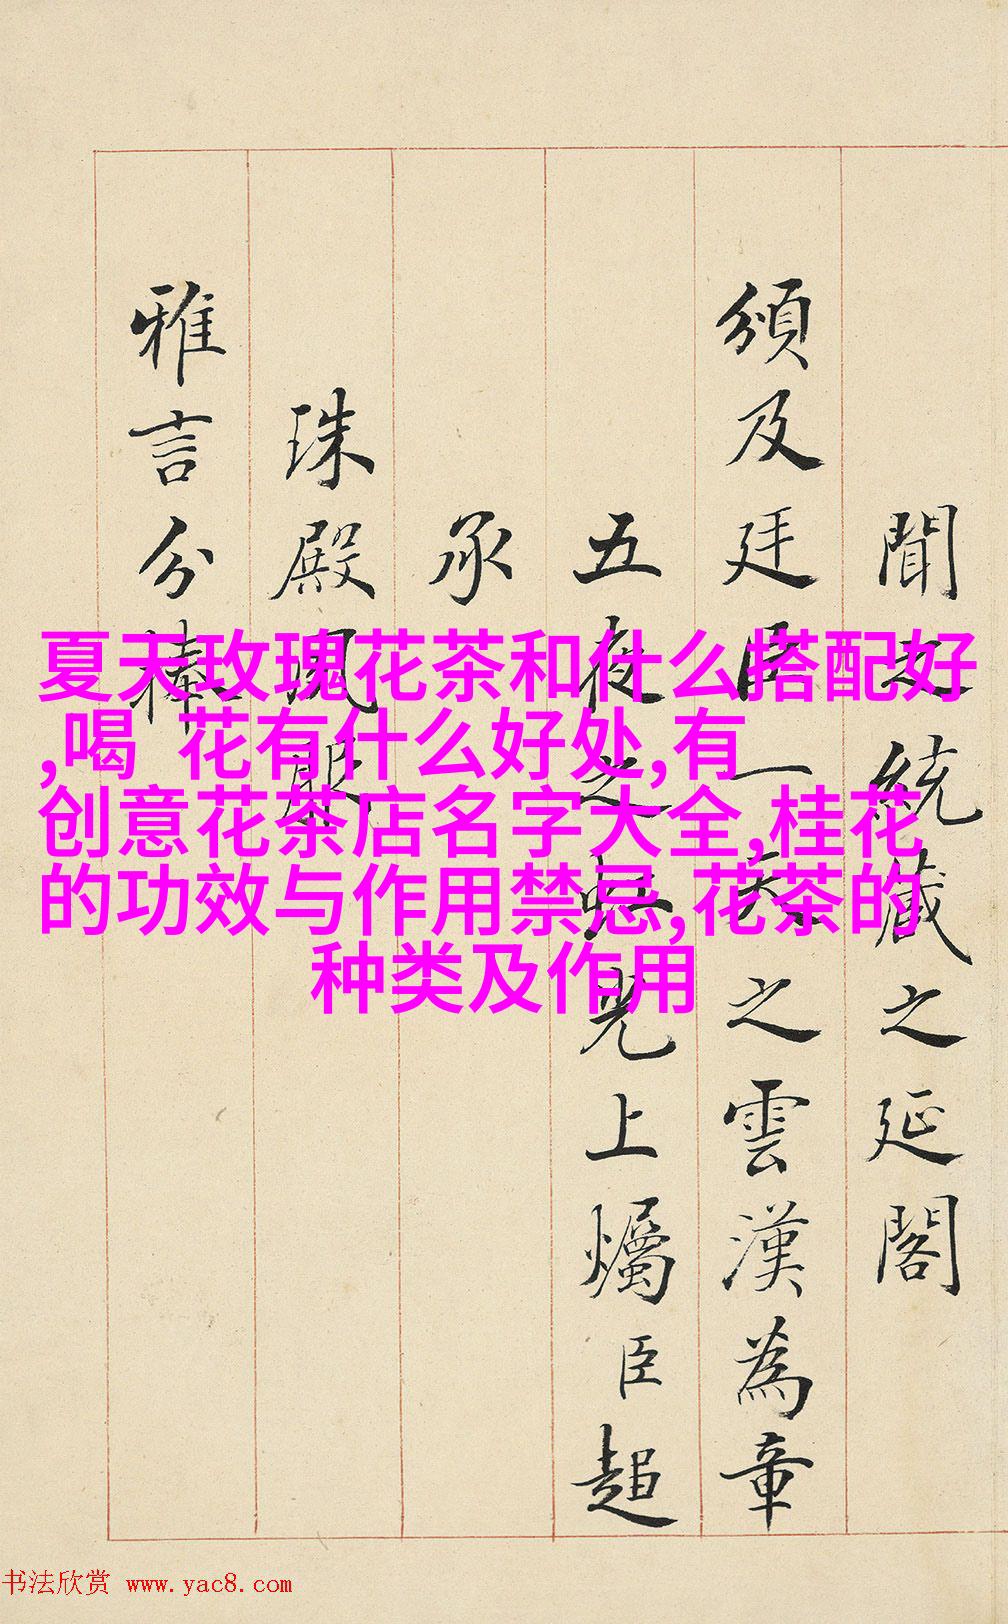 聞統藏之延閣
頒及廷臣一之雲漢為章
五夜之虹光上爥臣超
承
珠殿
雅言分
夏天玫瑰花茶和什么搭配好
,喝 花有什么好处,有
创意花茶店名字大全,桂花
的功效与作用禁忌,花茶的
种类及作用
书法欣赏 www.yac8.com